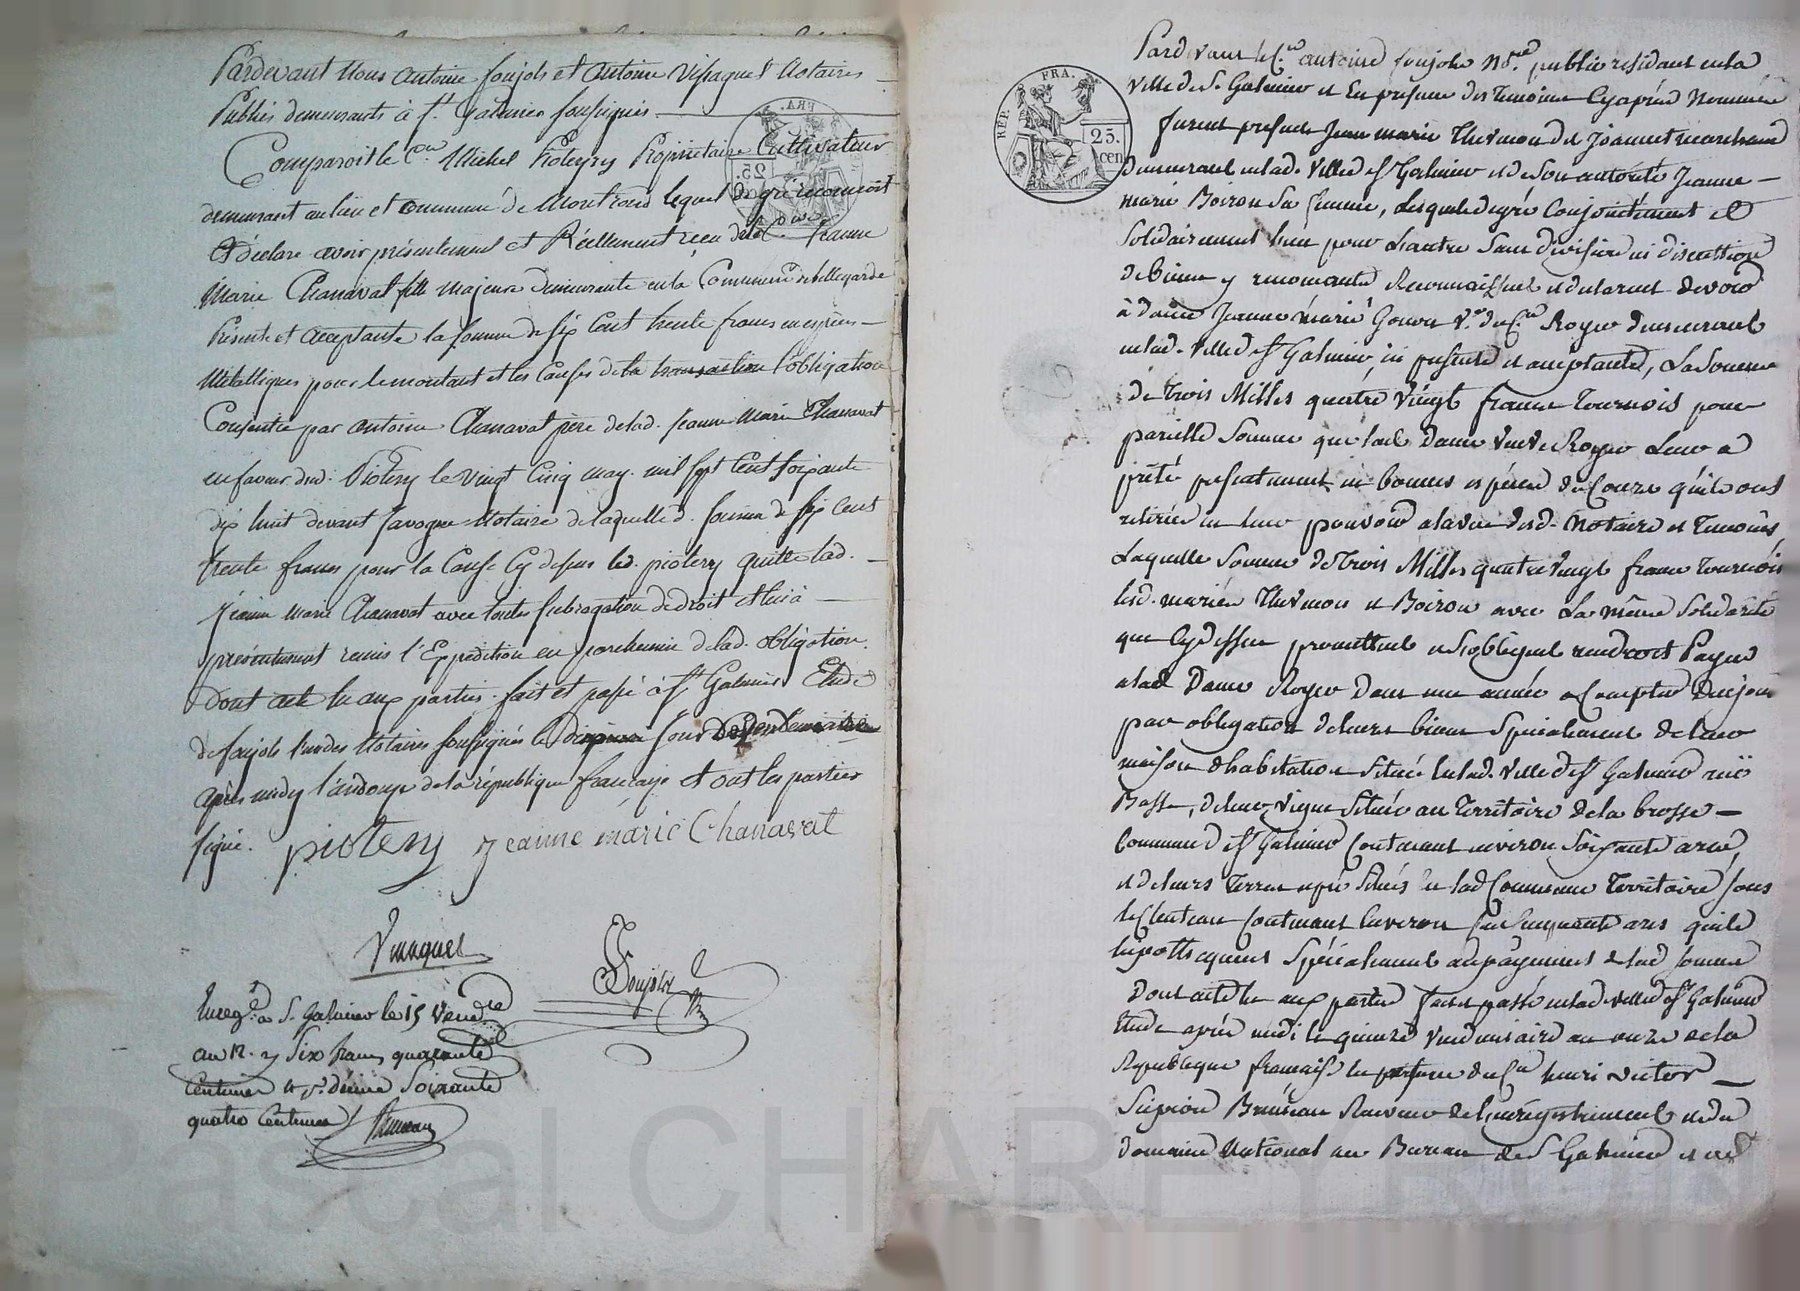 Pardevant Nous Antoine foujols et Antoine Notaires
Publics demeurants à St. Galmier soussignés
Comparoit le Cen. Michel Propriétaire Cultivateur
demeurant au lieu et commune de Montrond lequel de gré reconnoit
et déclare avoir présentement et Réellement reçu de la Ce. Jeanne
Marie Chanavat fille majeure demeurante en la Commune de bellegarde
Présente et acceptante la somme de six Cent trente francs en espèces
Métalliques pour le montant et les Causes de la transaction l'obligation
Consentie par Antoine Chanavat père de lad. Jeanne Marie Chanavat
en faveur dud. piotery le vingt Cinq may mil sept Cent soixante
dix huit devant Javogue Notaire de laquelle d. somme de six Cent
trente francs pour la Cause Cy dessus led. piotery quitte lad.
Jeanne Marie Chanavat avec toute subrogation de droit et lui a
présentement remis l'Expédition en parchemin de lad. obligation.
Dont acte lu aux parties. fait et passé à St Galmier Etude
de foujols l'un des Notaires soussignés le jour de vendemiaire
après midy l'an douze de la république française et ont les parties
signé. piotery jeanne marie Chanavat
Foujols
Enregé. à St. Galmier le 15 Vendre
an 12. Six francs quarante
Centimes et pr. décime Soixante
quatre Centimes Bruneau
REP. FRA.
25.
cen
Pardevant le Cen. antoine foujols Nore. public résidant en la
Ville de St. Galmier et En présence des temoins Cyaprès Nommés
furent présents Jean marie Thevenon et marchand
demeurant en lad. Ville de St Galmier et de son autorité Jeanne
marie Boiron sa femme, lesquels de gré Conjointement et
Solidairement l'un pour l'autre sans division ni discussion
de biens y renonçants Reconnaissent et déclarent devoir
à dame Jeanne marie Ve. du Cen. Royer demeurant
en lad. Ville de St Galmier, ici présente et acceptante, La Somme
de trois Milles quatre Vingt francs tournois pour
pareille Somme que lad Dame Veuve Royer Leur a
prêté présentement en bonnes espèces du Cours qu'ils ont
retirées en leur pouvoir a la vue desd. Notaire et Temoins,
Laquelle Somme de trois Milles quatre vingt francs tournois
lesd. mariés Thevenon et Boiron avec La même Solidarité
que Cydessus promettent et s'obligent rendre et Payer
a lad Dame Royer dans une année a Compter de ce jour
par obligation de leurs biens Spécialement de leur
maison d'habitation Située en lad. Ville de St Galmier rue
Basse, de leur vigne Située au territoire de la brosse
Commune de St Galmier Contenant environ Soixante ares,
et de leurs Terres Situés en lad Commune Territoire sous
Contenant Environ Cinquante ares qu'ils
hipothequent Spécialement au payement de lad somme
Dont acte lu aux parties fait et passé en lad ville de St Galmier
Etude après midi le quinze Vendemiaire an onze de la
Republique française En présence du Cen henri victor
Bruneau Receveur de l'enregistrement et du
domaine National au Bureau de St Galmier et de
Pascal CHAREYRON